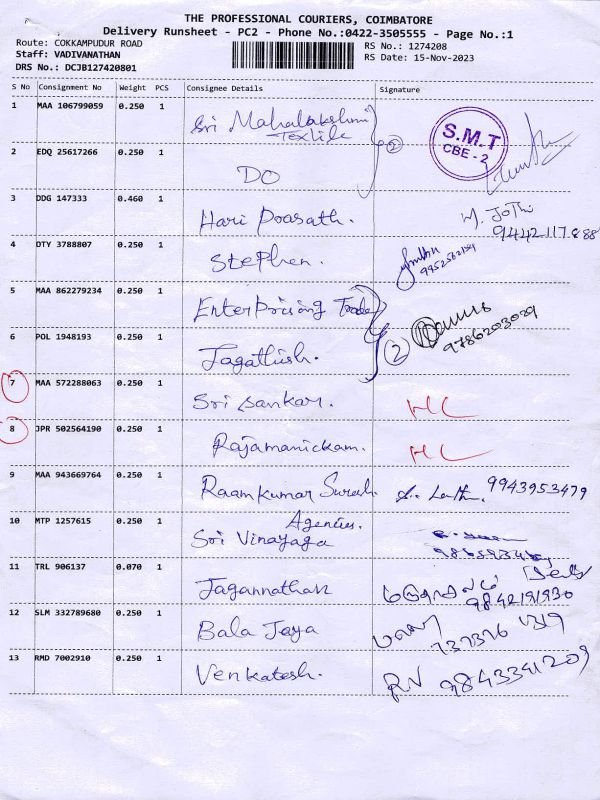 THE PROFESSIONAL COURIERS, COIMBATORE
Delivery Runsheet - PC2 - Phone No.:0422-3505555 - Page No.:1
Route: COKKAMPUDUR ROAD
Staff: VADIVANATHAN
DRS No.: DCJB127420801
RS No.: 1274208
RS Date: 15-Nov-2023
S No Consignment No Weight PCS Consignee Details Signature
1 MAA 106799059 0.250 1 Sri Mahalakshmi
Textile
2
S.M.T
CBE - 2
2 EDQ 25617266 0.250 1 DO
3 DDG 147333 0.460 1 Hari Prasath. M. Jothi
9442117888
4 OTY 3788807 0.250 1 Stephen.
5 MAA 862279234 0.250 1 Enterprising Trade
9786203029
6 POL 1948193 0.250 1 Jagathish. 2
7 MAA 572288063 0.250 1 Sri Sankar. HC
8 JPR 502564190 0.250 1 Rajamanickam. HC
9 MAA 943669764 0.250 1 Raamkumar Suresh 9943953479
10 MTP 1257615 0.250 1 Agencies.
Sri Vinayaga
11 TRL 906137 0.070 1 Jagannathan
9842191930
12 SLM 332789680 0.250 1 Bala Jaya
13 RMD 7002910 0.250 1 Venkatesh. RN 9843341209